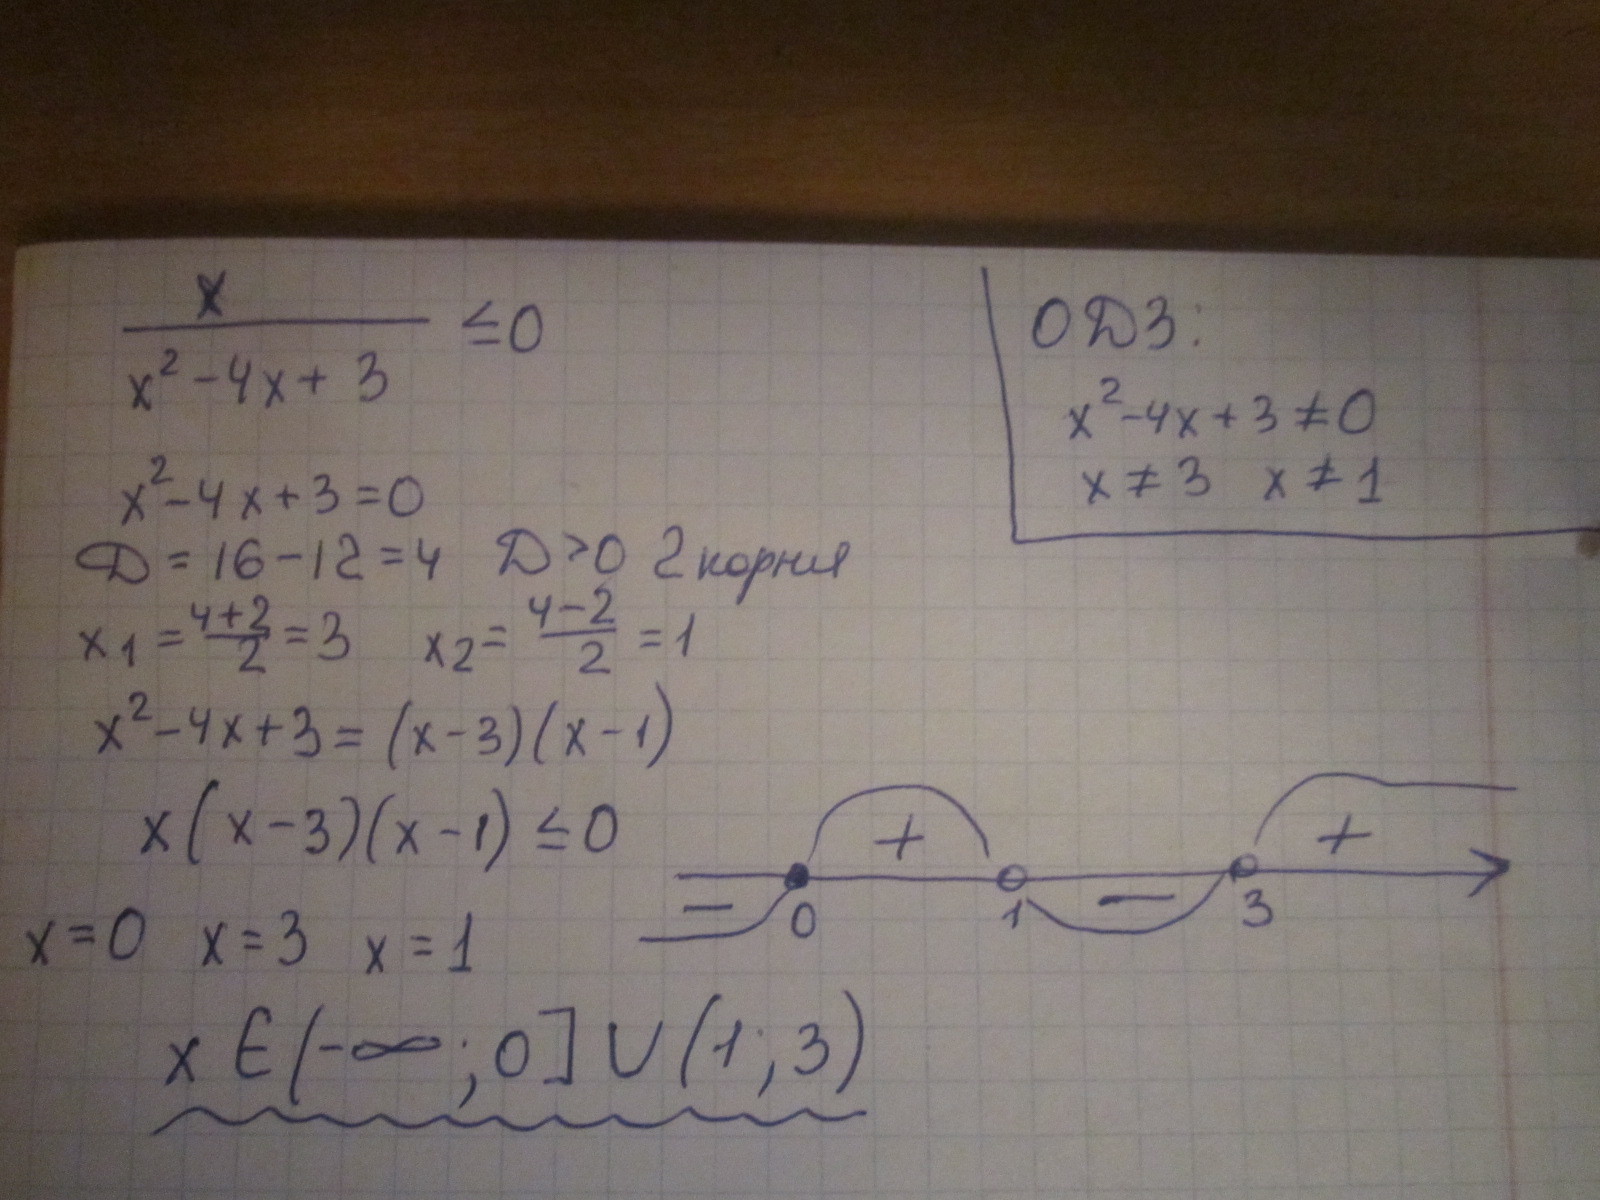 x / (x² - 4x + 3) ≤ 0
ОДЗ:
x² - 4x + 3 ≠ 0
x ≠ 3 x ≠ 1
x² - 4x + 3 = 0
D = 16 - 12 = 4 D > 0 2 корня
x₁ = (4+2)/2 = 3 x₂ = (4-2)/2 = 1
x² - 4x + 3 = (x - 3)(x - 1)
x(x - 3)(x - 1) ≤ 0
+ +
- -
0 1 3
x = 0 x = 3 x = 1
x ∈ (-∞; 0] ∪ (1; 3)